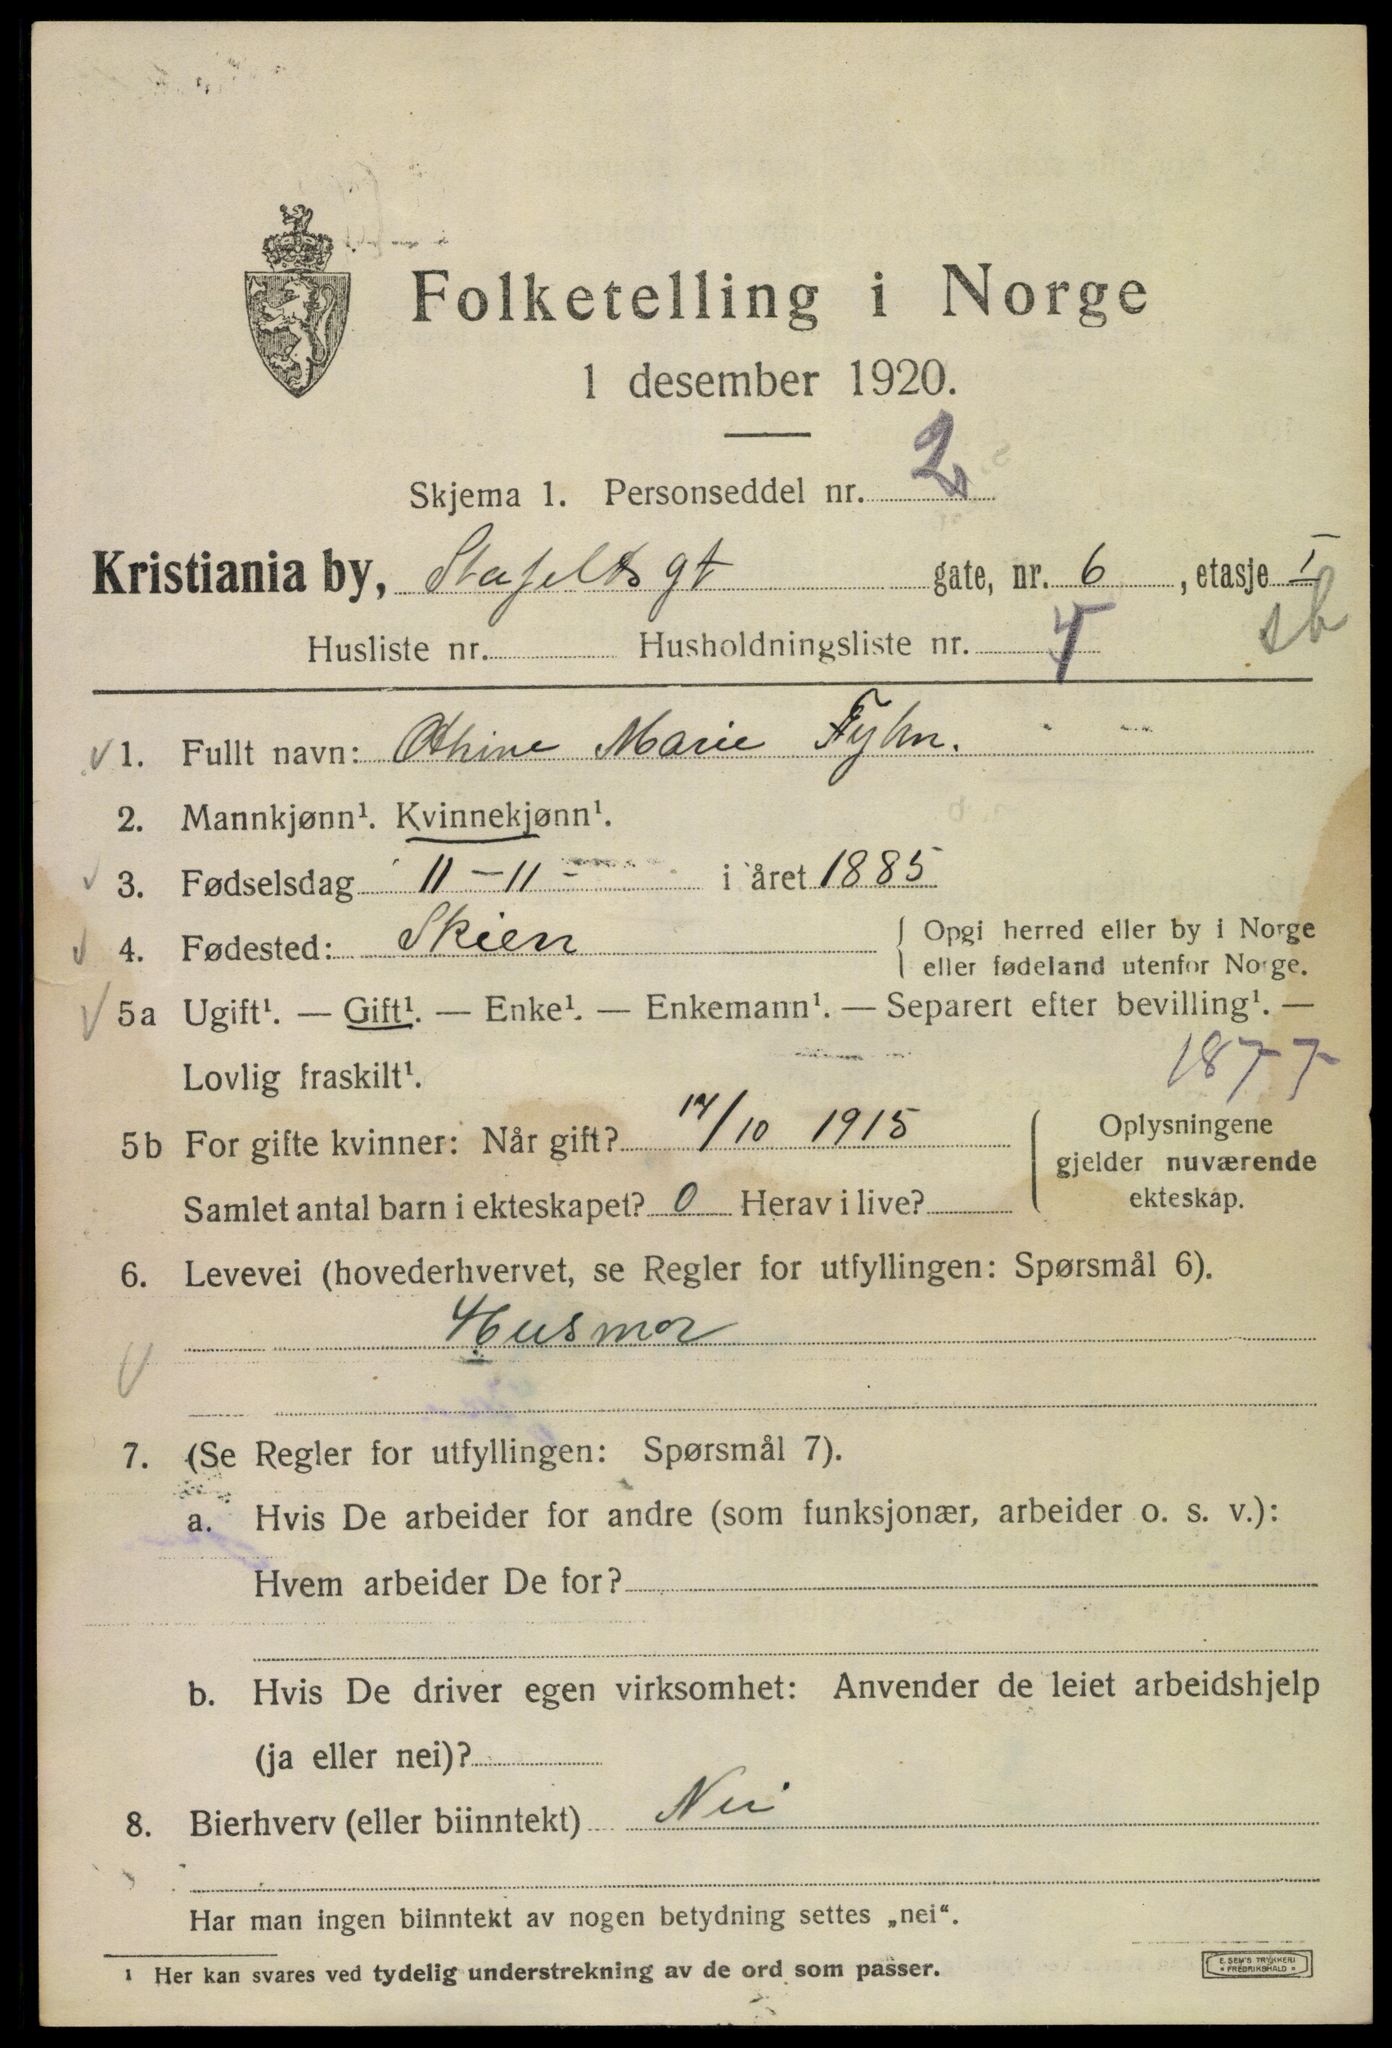 Folketelling i Norge
1 desember 1920.
Skjema 1. Personseddel nr. 2
Kristiania by, Stafeldts gt gate, nr. 6, etasje I
sb
Husliste nr. Husholdningsliste nr. 4
1. Fullt navn: Othine Marie Fyhn.
2. Mannkjønn¹. Kvinnekjønn¹.
3. Fødselsdag 11-11- i året 1885
4. Fødested: Skien { Opgi herred eller by i Norge
eller fødeland utenfor Norge.
5a Ugift¹. — Gift¹. — Enke¹. — Enkemann¹. — Separert efter bevilling¹. —
Lovlig fraskilt¹. 1877
5b For gifte kvinner: Når gift? 17/10 1915 { Oplysningene
gjelder nuværende
ekteskap.
Samlet antal barn i ekteskapet? 0 Herav i live?
6. Levevei (hovederhvervet, se Regler for utfyllingen: Spørsmål 6).
Husmor
7. (Se Regler for utfyllingen: Spørsmål 7).
a. Hvis De arbeider for andre (som funksjonær, arbeider o. s. v.):
Hvem arbeider De for?
b. Hvis De driver egen virksomhet: Anvender de leiet arbeidshjelp
(ja eller nei)?
8. Bierhverv (eller biinntekt) Nei
Har man ingen biinntekt av nogen betydning settes „nei“.
¹ Her kan svares ved tydelig understrekning av de ord som passer.
E. SEM'S TRYKKERI
FREDRIKSHALD